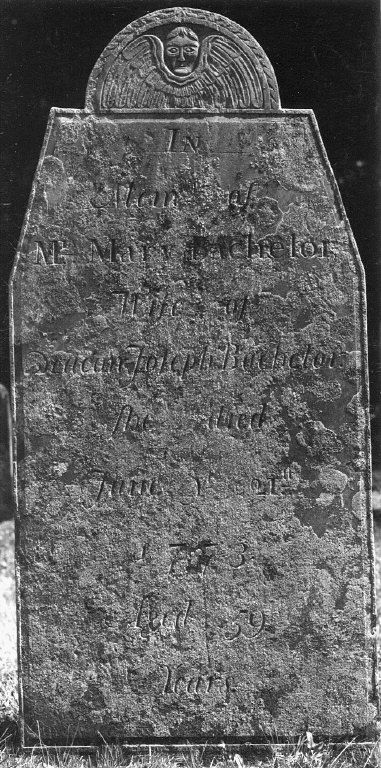 IN
Mem of
Mrs Mary Bachelor
Wife of
Deacon Joseph Bachelor
she died
June ye 21st
1773
Aged 59
Years